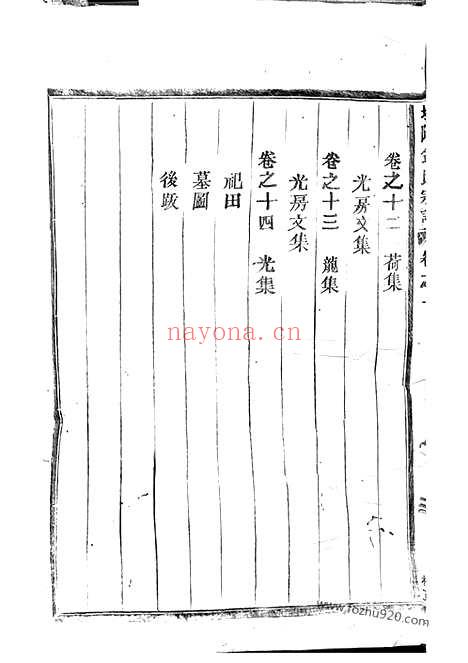 卷之十二 荷集
光房文集
卷之十三 龍集
光房文集
卷之十四 光集
祀田
墓圖
後跋
nayona.cn
www.fozhu920.com